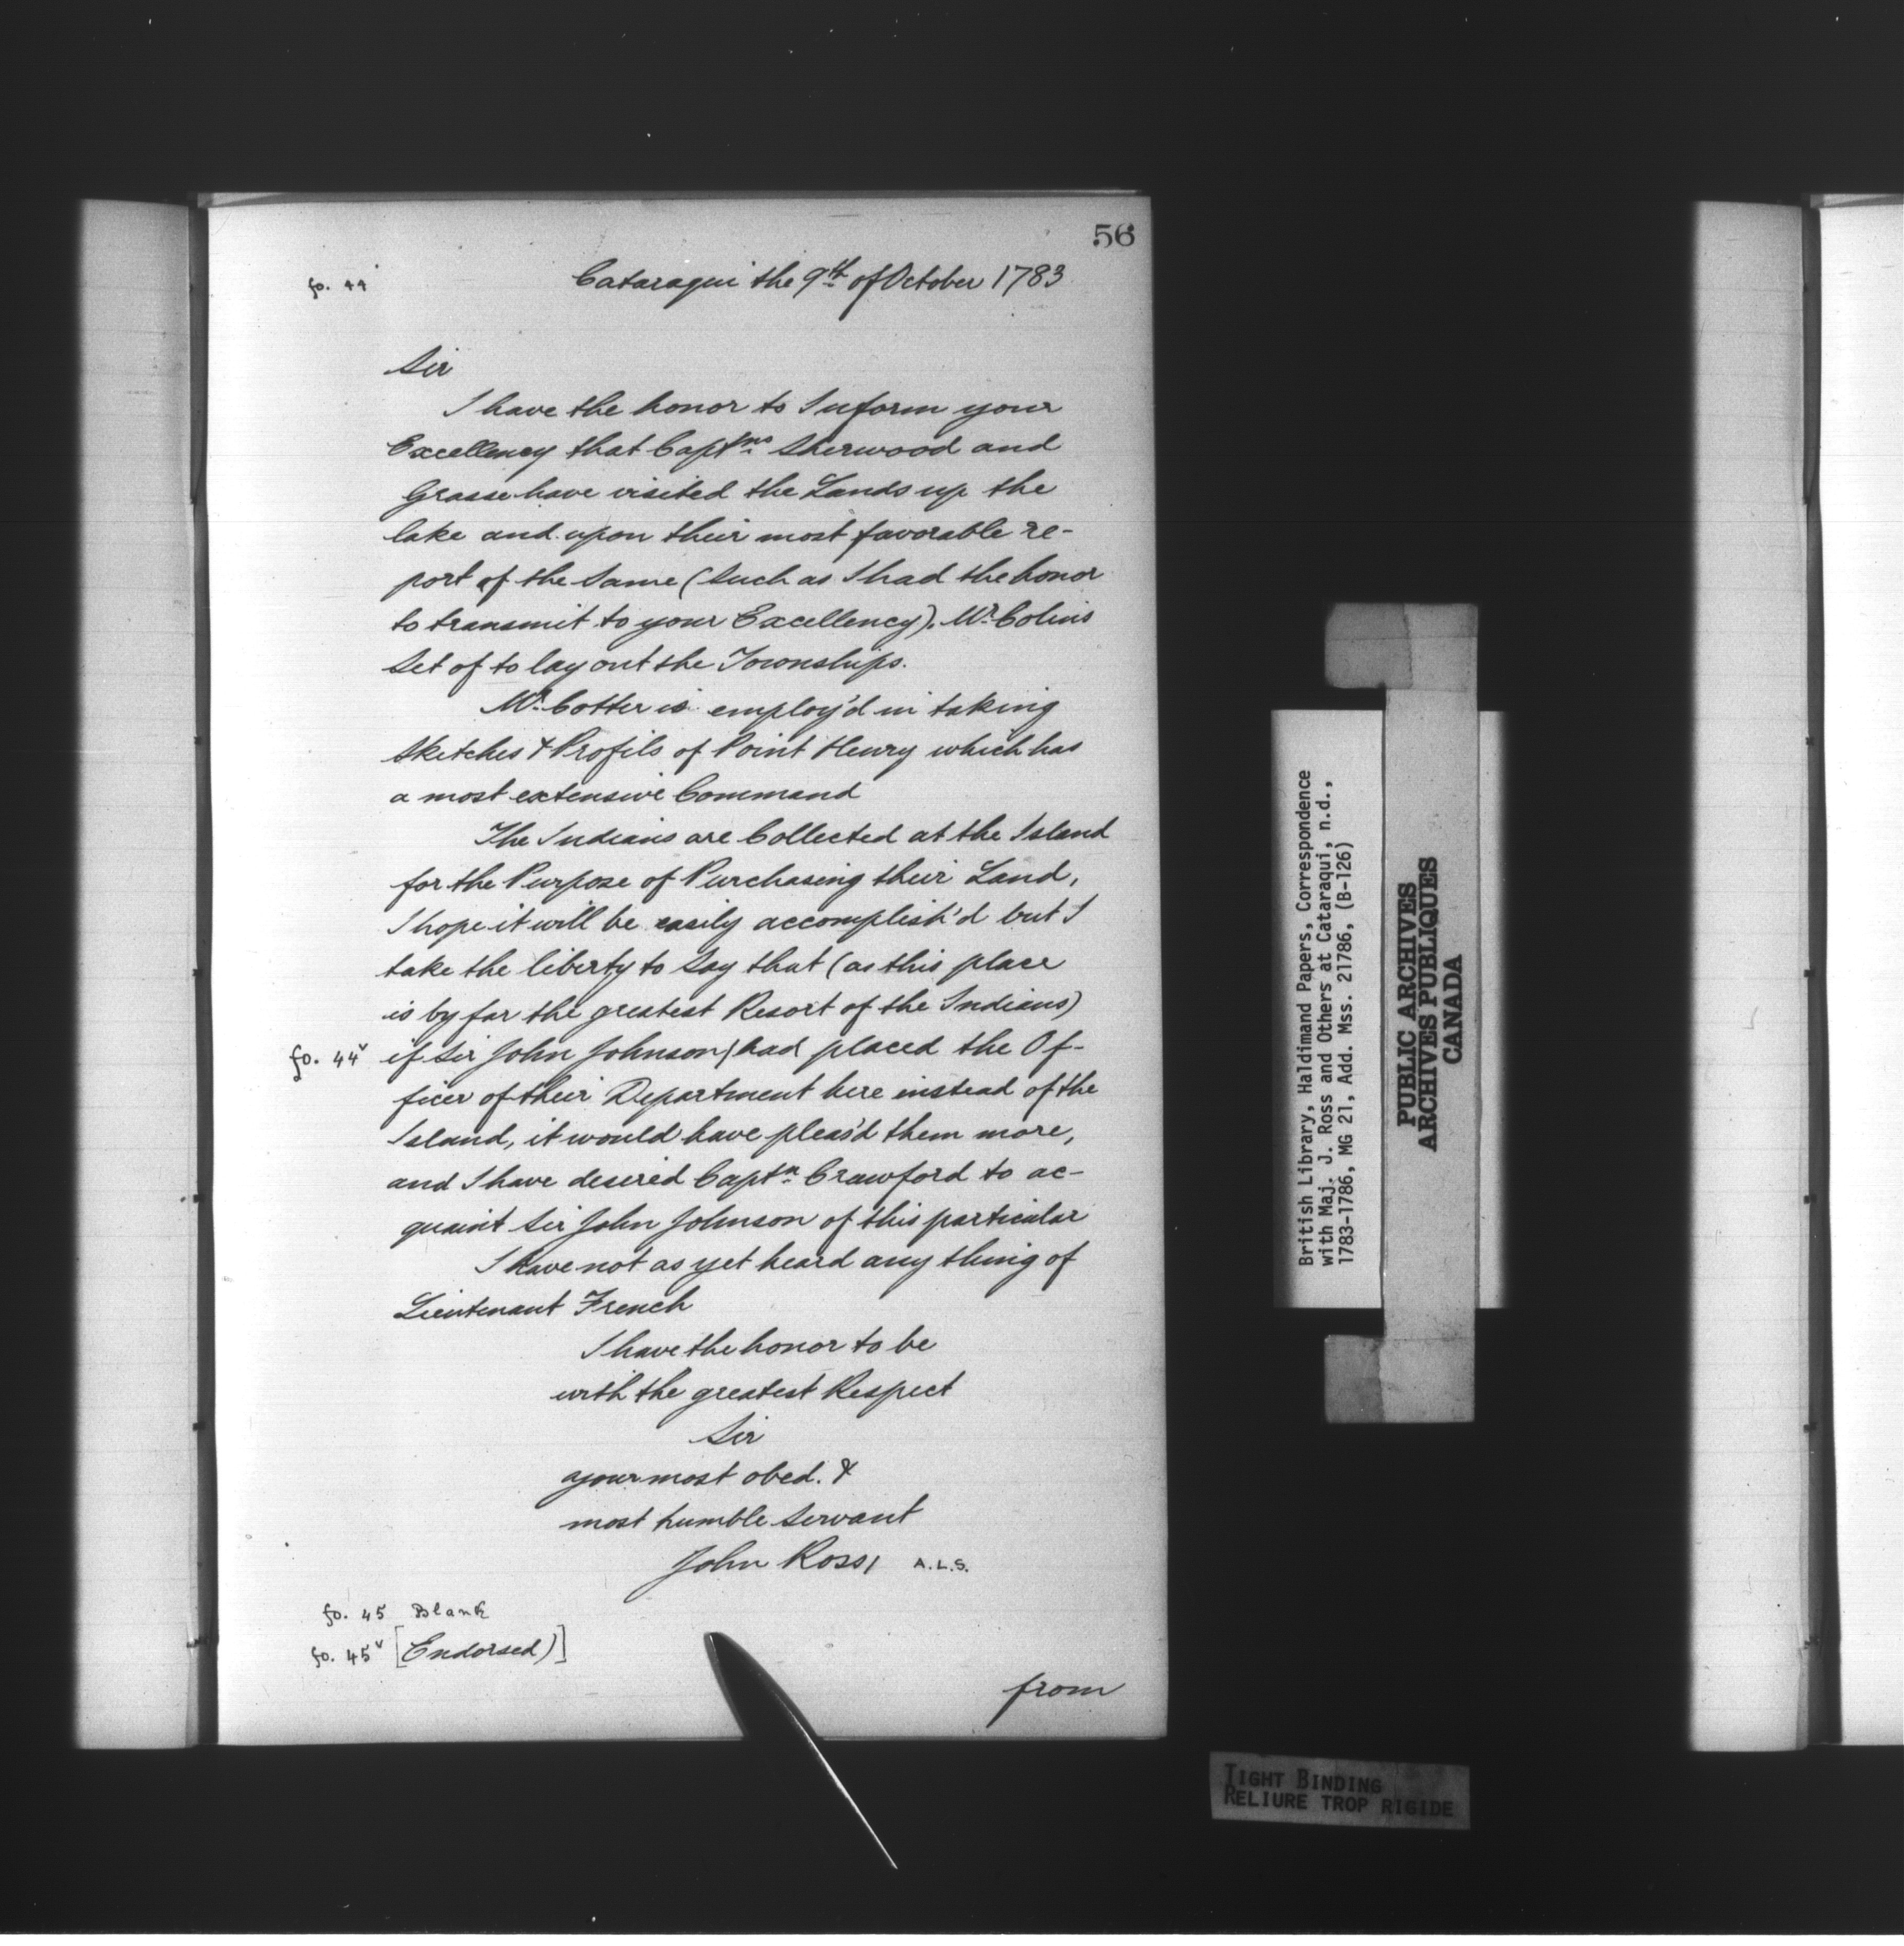 56
fo. 44
Cataraqui the 9th of October 1783
Sir
I have the honor to Inform your
Excellency that Captns Sherwood and
Grasse have visited the Lands up the
lake and upon their most favorable re-
port of the Same (Such as I had the honor
to transmit to your Excellency). Mr Colins
Set of to lay out the Townships.
Mr Cotter is employ'd in taking
Sketches & Profils of Point Henry which has
a most extensive Command
The Indians are Collected at the Island
for the Purpose of Purchasing their Land,
I hope it will be easily accomplish'd but I
take the liberty to Say that (as this place
is by far the greatest Resort of the Indians)
fo. 44v if Sir John Johnson / had placed the Of-
ficer of their Department here instead of the
Island, it would have pleas'd them more,
and I have desired Captn Crawford to ac-
quaint Sir John Johnson of this particular
I have not as yet heard any thing of
Lieutenant French
I have the honor to be
with the greatest Respect
Sir
your most obed. &
most humble Servant
John Ross / A.L.S.
fo. 45 Blank
fo. 45v [Endorsed)]
from
British Library, Haldimand Papers, Correspondence
with Maj. J. Ross and Others at Cataraqui, n.d.,
1783-1786, MG 21, Add. Mss. 21786, (B-126)
PUBLIC ARCHIVES
ARCHIVES PUBLIQUES
CANADA
TIGHT BINDING
RELIURE TROP RIGIDE